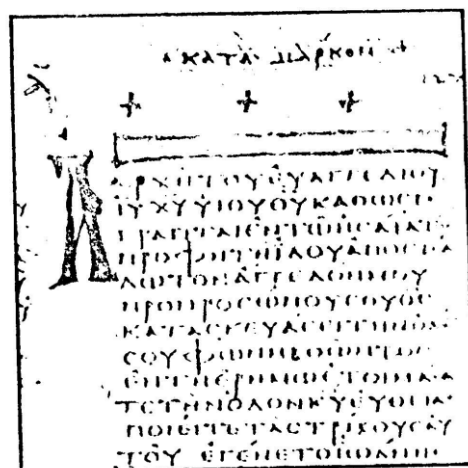 ΚΑΤΑ ΜΑΡΚΟΝ
ΑΡΧΗ ΤΟΥ ΕΥΑΓΓΕΛΙΟΥ
ΙΥ ΧΥ ΥΙΟΥ ΘΥ ΚΑΘΩϹ ΓΕ
ΓΡΑΠΤΑΙ ΕΝ ΤΩ ΗϹΑΙΑ
ΠΡΟΦΗΤΗ ΙΔΟΥ ΑΠΟϹΤΕΛ
ΛΩ ΤΟΝ ΑΓΓΕΛΟΝ ΜΟΥ
ΠΡΟ ΠΡΟϹΩΠΟΥ ϹΟΥ ΟϹ
ΚΑΤΑϹΚΕΥΑϹΕΙ ΤΗΝ ΟΔΟ
ϹΟΥ ΦΩΝΗ ΒΟΩΝΤΟϹ
ΕΝ ΤΗ ΕΡΗΜΩ ΕΤΟΙΜΑϹΑ
ΤΕ ΤΗΝ ΟΔΟΝ ΚΥ ΕΥΘΕΙΑϹ
ΠΟΙΕΙΤΕ ΤΑϹ ΤΡΙΒΟΥϹ ΑΥ
ΤΟΥ ΕΓΕΝΕΤΟ ΙΩΑΝΝΗϹ